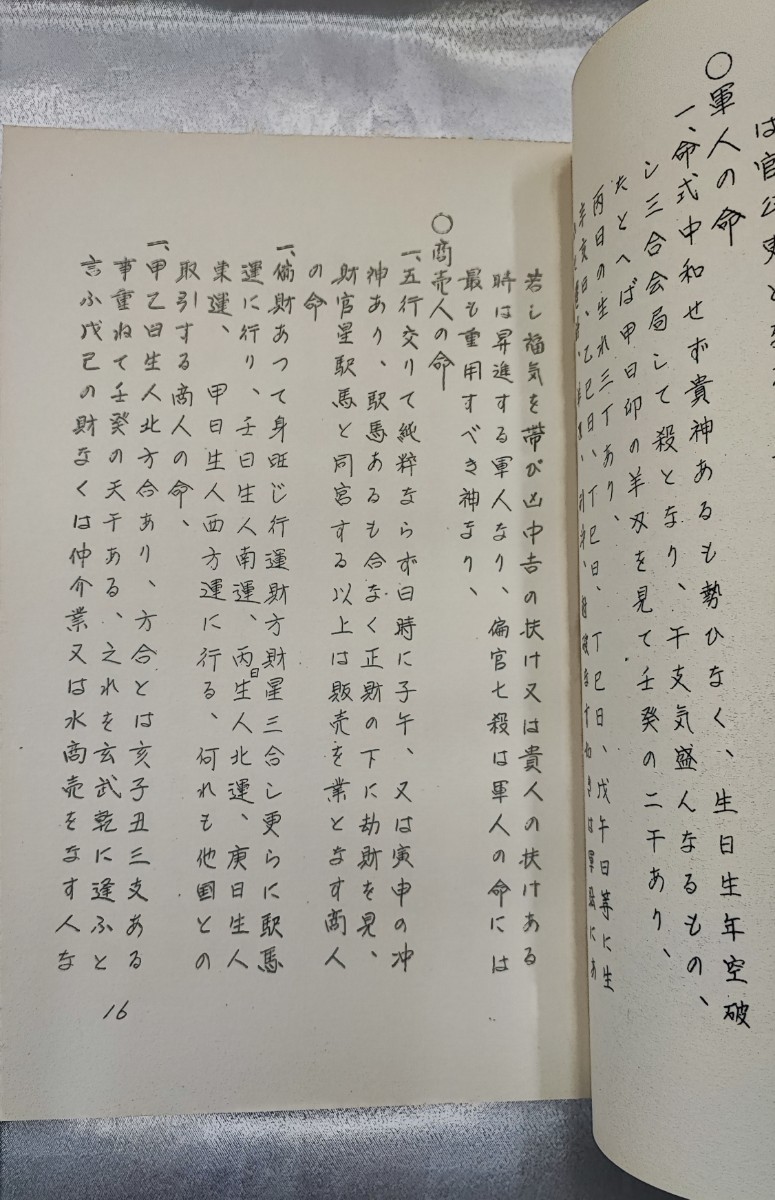 は官公吏と
○軍人の命
一、命式中和せず貴神あるも勢ひなく、生日生年空破
し三合会局して殺となり、干支気盛んなるもの、
たとへば甲日卯の羊刄を見て壬癸の二干あり、
丙日の生れ三丁あり、
辛亥日、乙巳日、丁巳日、丁巳日、戊午日等に生
若し福気を帯び凶中吉の扶け又は貴人の扶けある
時は昇進する軍人なり、偏官七殺は軍人の命には
最も重用すべき神なり、
○商売人の命
一、五行交りて純粋ならず日時に子午、又は寅申の冲
神あり、駅馬あるも合なく正財の下に劫財を見、
財官星駅馬と同宮する以上は販売を業となす商人
の命
一、偏財あつて身旺じ行運財方財星三合し更らに駅馬
運に行り、壬日生人南運、丙日生人北運、庚日生人
東運、甲日生人西方運に行る、何れも他国との
取引する商人の命、
一、甲乙日生人北方合あり、方合とは亥子丑三支ある
事重ねて壬癸の天干ある、之れを玄武乾に逢ふと
言ふ戊己の財なくは仲介業又は水商売をなす人な
16